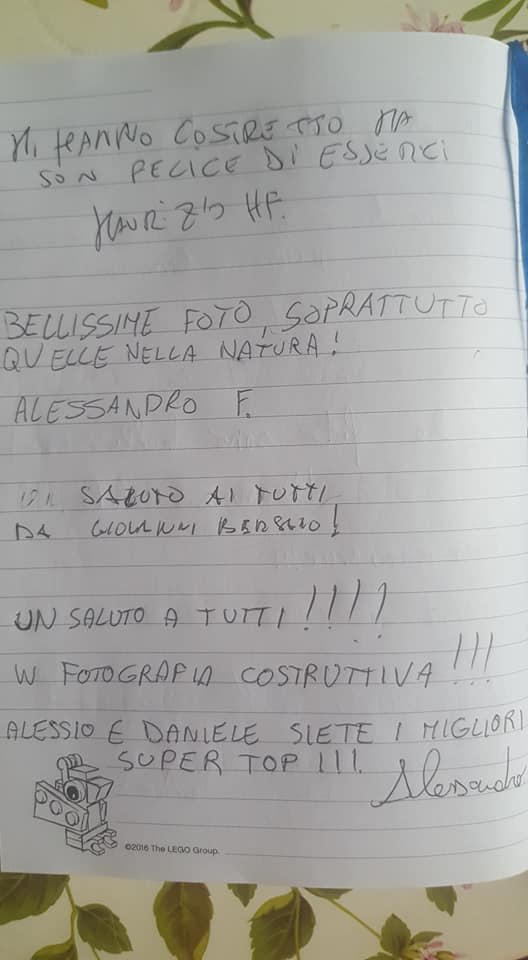 MI HANNO COSTRETTO MA
SON FELICE DI ESSERCI
MAURIZIO HF.
BELLISSIME FOTO, SOPRATTUTTO
QUELLE NELLA NATURA!
ALESSANDRO F.
SALUTO AI TUTTI
DA GIOVANNI !
UN SALUTO A TUTTI!!!!
W FOTOGRAFIA COSTRUTTIVA!!!
ALESSIO E DANIELE SIETE I MIGLIORI
SUPER TOP!!!
Alessandro
©2016 The LEGO Group.